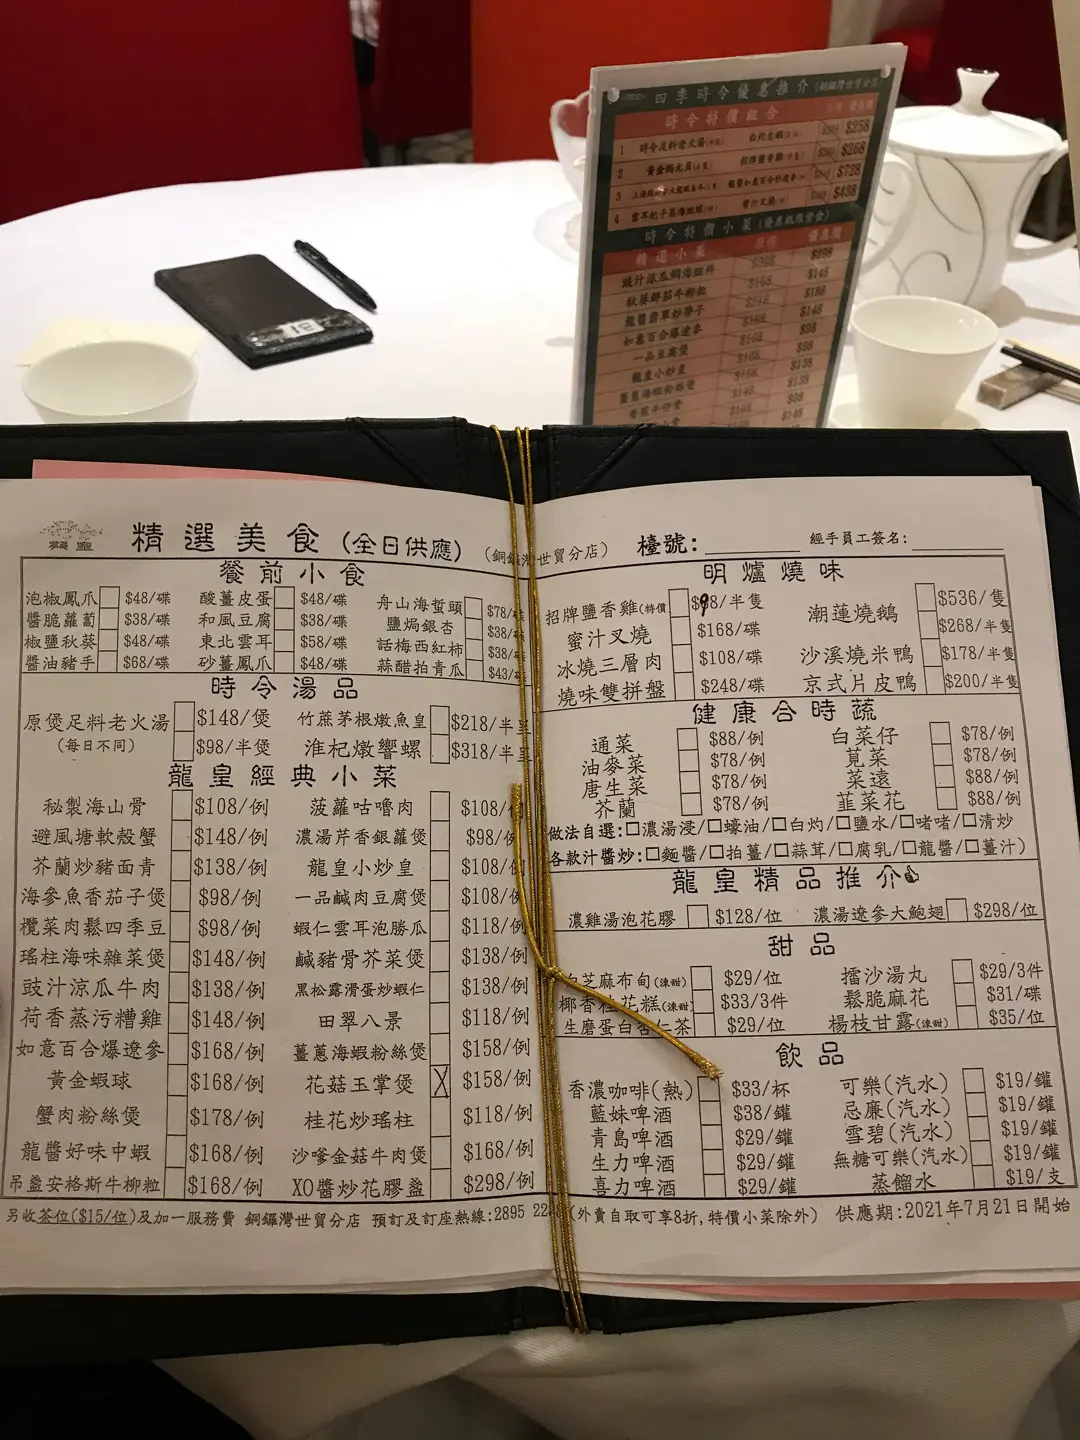 四季時令優惠推介(銅鑼灣世貿分店)
時令特價組合
1 時令足料老火湯 白灼生蝦 $258
2 黃金焗元貝 招牌鹽香雞 $268
3 $728
4 蜜汁叉燒 $438
時令特價小菜
精選小菜 原價 優惠價
豉汁涼瓜焗海斑件 $98
秋葵鮮菇牛柳粒 $148
龍醬翡翠炒帶子 $188
如意百合爆遼參 $168 $148
一品豆腐煲 $98
龍皇小炒皇 $98
薑蔥海蝦粉絲煲 $158 $138
香煎牛仔骨 $148
精選美食(全日供應) (銅鑼灣世貿分店) 檯號: 經手員工簽名:
餐前小食
泡椒鳳爪 $48/碟 酸薑皮蛋 $48/碟 舟山海蜇頭 $78/碟
醬脆蘿蔔 $38/碟 和風豆腐 $38/碟 鹽焗銀杏 $38/碟
椒鹽秋葵 $48/碟 東北雲耳 $58/碟 話梅西紅柿 $38/碟
醬油豬手 $68/碟 砂薑鳳爪 $48/碟 蒜醋拍青瓜 $43/碟
時令湯品
原煲足料老火湯 $148/煲 竹蔗茅根燉魚皇 $218/半
(每日不同) $98/半煲 淮杞燉響螺 $318/半
龍皇經典小菜
秘製海山骨 $108/例 菠蘿咕嚕肉 $108/例
避風塘軟殼蟹 $148/例 濃湯芹香銀蘿煲 $98/例
芥蘭炒豬面青 $138/例 龍皇小炒皇 $108/例
海參魚香茄子煲 $98/例 一品鹹肉豆腐煲 $108/例
欖菜肉鬆四季豆 $98/例 蝦仁雲耳泡勝瓜 $118/例
瑤柱海味雜菜煲 $148/例 鹹豬骨芥菜煲 $138/例
豉汁涼瓜牛肉 $138/例 黑松露滑蛋炒蝦仁 $138/例
荷香蒸污糟雞 $148/例 田翠八景 $118/例
如意百合爆遼參 $168/例 薑蔥海蝦粉絲煲 $158/例
黃金蝦球 $168/例 花菇玉掌煲 X $158/例
蟹肉粉絲煲 $178/例 桂花炒瑤柱 $118/例
龍醬好味中蝦 $168/例 沙嗲金菇牛肉煲 $168/例
吊盞安格斯牛柳粒 $168/例 XO醬炒花膠盞 $298/例
明爐燒味
招牌鹽香雞(特價) $98/半隻 潮蓮燒鵝 $536/隻
蜜汁叉燒 $168/碟 $268/半隻
冰燒三層肉 $108/碟 沙溪燒米鴨 $178/半隻
燒味雙拼盤 $248/碟 京式片皮鴨 $200/半隻
健康合時蔬
通菜 $88/例 白菜仔 $78/例
油麥菜 $78/例 莧菜 $78/例
唐生菜 $78/例 菜遠 $88/例
芥蘭 $78/例 韮菜花 $88/例
做法自選:□濃湯浸/□蠔油/□白灼/□鹽水/□啫啫/□清炒
各款汁醬炒:□麵醬/□拍薑/□蒜茸/□腐乳/□龍醬/□薑汁)
龍皇精品推介
濃雞湯泡花膠 $128/位 濃湯遼參大鮑翅 $298/位
甜品
白芝麻布甸(凍甜) $29/位 擂沙湯丸 $29/3件
椰香桂花糕(凍甜) $33/3件 鬆脆麻花 $31/碟
生磨蛋白杏仁茶 $29/位 楊枝甘露(凍甜) $35/位
飲品
香濃咖啡(熱) $33/杯 可樂(汽水) $19/罐
藍妹啤酒 $38/罐 忌廉(汽水) $19/罐
青島啤酒 $29/罐 雪碧(汽水) $19/罐
生力啤酒 $29/罐 無糖可樂(汽水) $19/罐
喜力啤酒 $29/罐 蒸餾水 $19/支
另收茶位($15/位)及加一服務費 銅鑼灣世貿分店 預訂及訂座熱線:2895 22 (外賣自取可享8折,特價小菜除外) 供應期:2021年7月21日開始